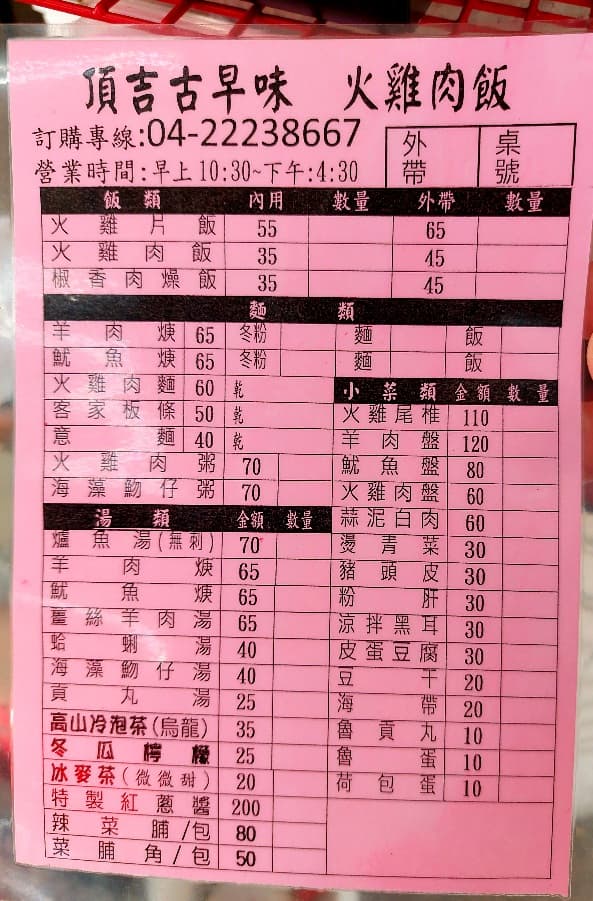 頂吉古早味 火雞肉飯
訂購專線:04-22238667
營業時間:早上10:30~下午:4:30
外帶 桌號
飯類 內用 數量 外帶 數量
火雞片飯 55 65
火雞肉飯 35 45
椒香肉燥飯 35 45
麵類
羊肉焿 65 冬粉 麵 飯
魷魚焿 65 冬粉 麵 飯
火雞肉麵 60 乾
客家板條 50 乾
意麵 40 乾
火雞肉粥 70
海藻魩仔粥 70
湯類 金額 數量
爐魚湯(無刺) 70
羊肉焿 65
魷魚焿 65
薑絲羊肉湯 65
蛤蜊湯 40
海藻魩仔湯 40
貢丸湯 25
高山冷泡茶(烏龍) 35
冬瓜檸檬 25
冰麥茶(微微甜) 20
特製紅蔥醬 200
辣菜脯/包 80
菜脯角/包 50
小菜類 金額 數量
火雞尾椎 110
羊肉盤 120
魷魚盤 80
火雞肉盤 60
蒜泥白肉 60
燙青菜 30
豬頭皮 30
粉肝 30
涼拌黑耳 30
皮蛋豆腐 30
豆干 20
海帶 20
魯貢丸 10
魯蛋 10
荷包蛋 10